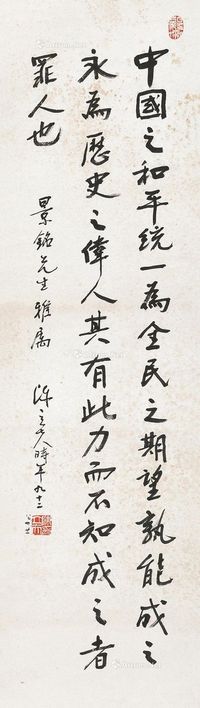 中國之和平統一為全民之期望孰能成之
永為歷史之偉人其有此力而不知成之者
罪人也
景銘先生雅屬
陳立夫時年九十二